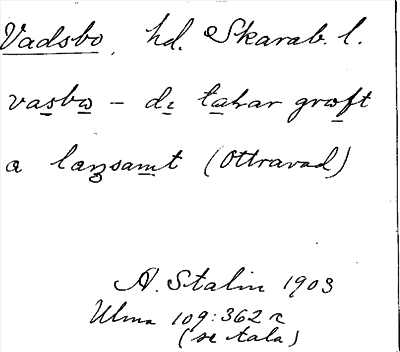 Vadsbo, hd. Skarab. l.
vasbω – dε talar grωft
a laŋsamt (Ottravad)
A. Stalin 1903
Ulma 109:362 r
(se tala)